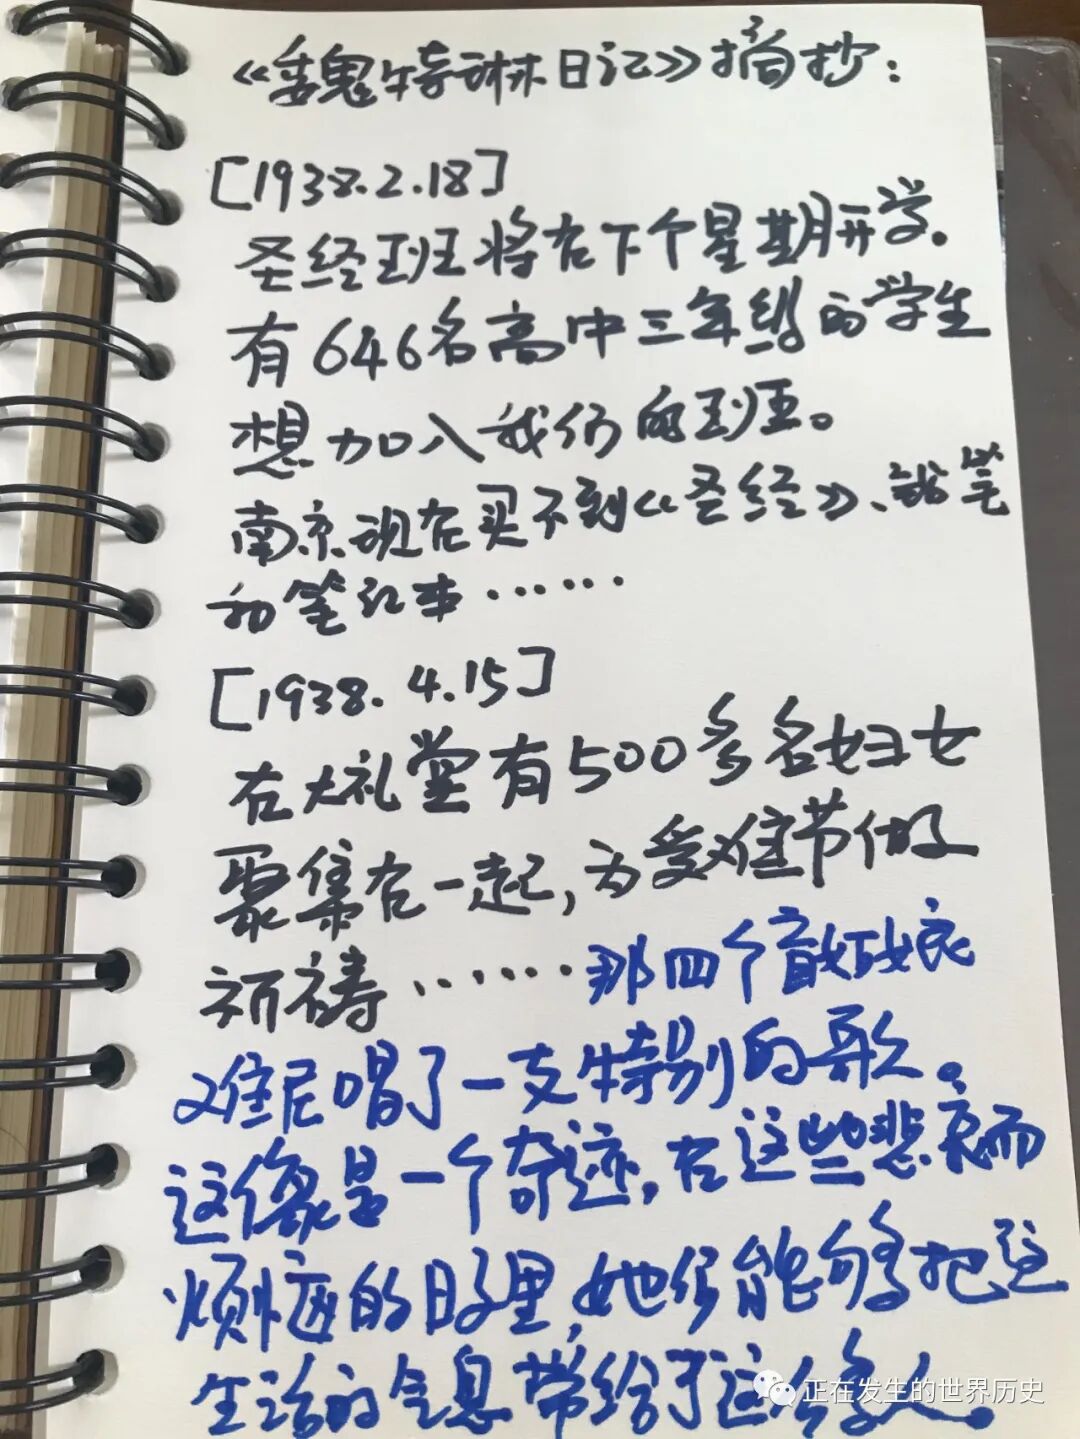 《魏特琳日记》摘抄：
[1938.2.18]
圣经班将在下个星期开学。
有646名高中三年级的学生
想加入我们的班。
南京现在买不到《圣经》、铅笔
和笔记本……
[1938.4.15]
在大礼堂有500多名妇女
聚集在一起，为受难节做
祈祷……那四个盲姑娘
难民唱了一支特别的歌。
这像是一个奇迹，在这些悲哀而
烦恼的日子里，她们能够把这
生活的气息带给了这么多人。
正在发生的世界历史